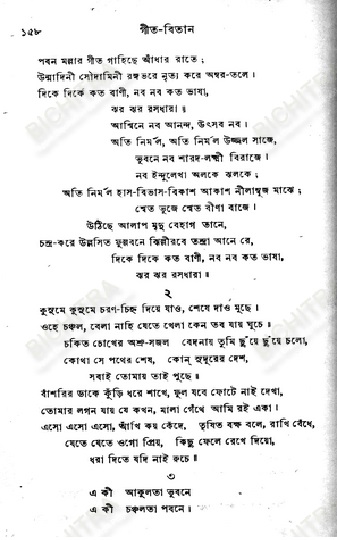 ১৫৮ গীত-বিতান
পবন মল্লার গীত গাহিছে আঁধার রাতে;
উন্মাদিনী সৌদামিনী রঙ্গভরে নৃত্য করে অম্বর-তলে।
দিকে দিকে কত বাণী, নব নব কত ভাষা,
ঝর ঝর রসধারা॥
আশ্বিনে নব আনন্দ, উৎসব নব।
অতি নির্মল, অতি নির্মল উজ্জ্বল সাজে,
ভুবনে নব শারদ-লক্ষ্মী বিরাজে।
নব ইন্দুলেখা অলকে ঝলকে;
অতি নির্মল হাস-বিভাস-বিকাশ আকাশ নীলাম্বুজ মাঝে;
শ্বেত ভুজে শ্বেত বীণা বাজে।
উঠিছে আলাপ মৃদু বেহাগ তানে,
চন্দ্র-করে উল্লসিত ফুল্লবনে ঝিল্লীরবে তন্দ্রা আনে রে,
দিকে দিকে কত বাণী, নব নব কত ভাষা,
ঝর ঝর রসধারা॥
২
কুসুমে কুসুমে চরণ-চিহ্ন দিয়ে যাও, শেষে দাও মুছে।
ওহে চঞ্চল, বেলা নাহি যেতে খেলা কেন তব যায় ঘুচে।
চকিত চোখের অশ্রু-সজল বেদনায় তুমি ছুঁয়ে ছুঁয়ে চলো,
কোথা সে পথের শেষ, কোন্ সুদূরের দেশ,
সবাই তোমায় তাই পুছে॥
বাঁশরির ডাকে কুঁড়ি ধরে শাখে, ফুল যবে ফোটে নাই দেখা,
তোমার লগন যায় যে কখন, মালা গেঁথে আমি রই একা।
এসো এসো এসো, আঁখি কয় কেঁদে। তৃষিত বক্ষ বলে, রাখি বেঁধে,
যেতে যেতে ওগো প্রিয়, কিছু ফেলে রেখে দিয়ো,
ধরা দিতে যদি নাই রুচে॥
৩
এ কী আকুলতা ভুবনে
এ কী চঞ্চলতা পবনে।
BICHITRA